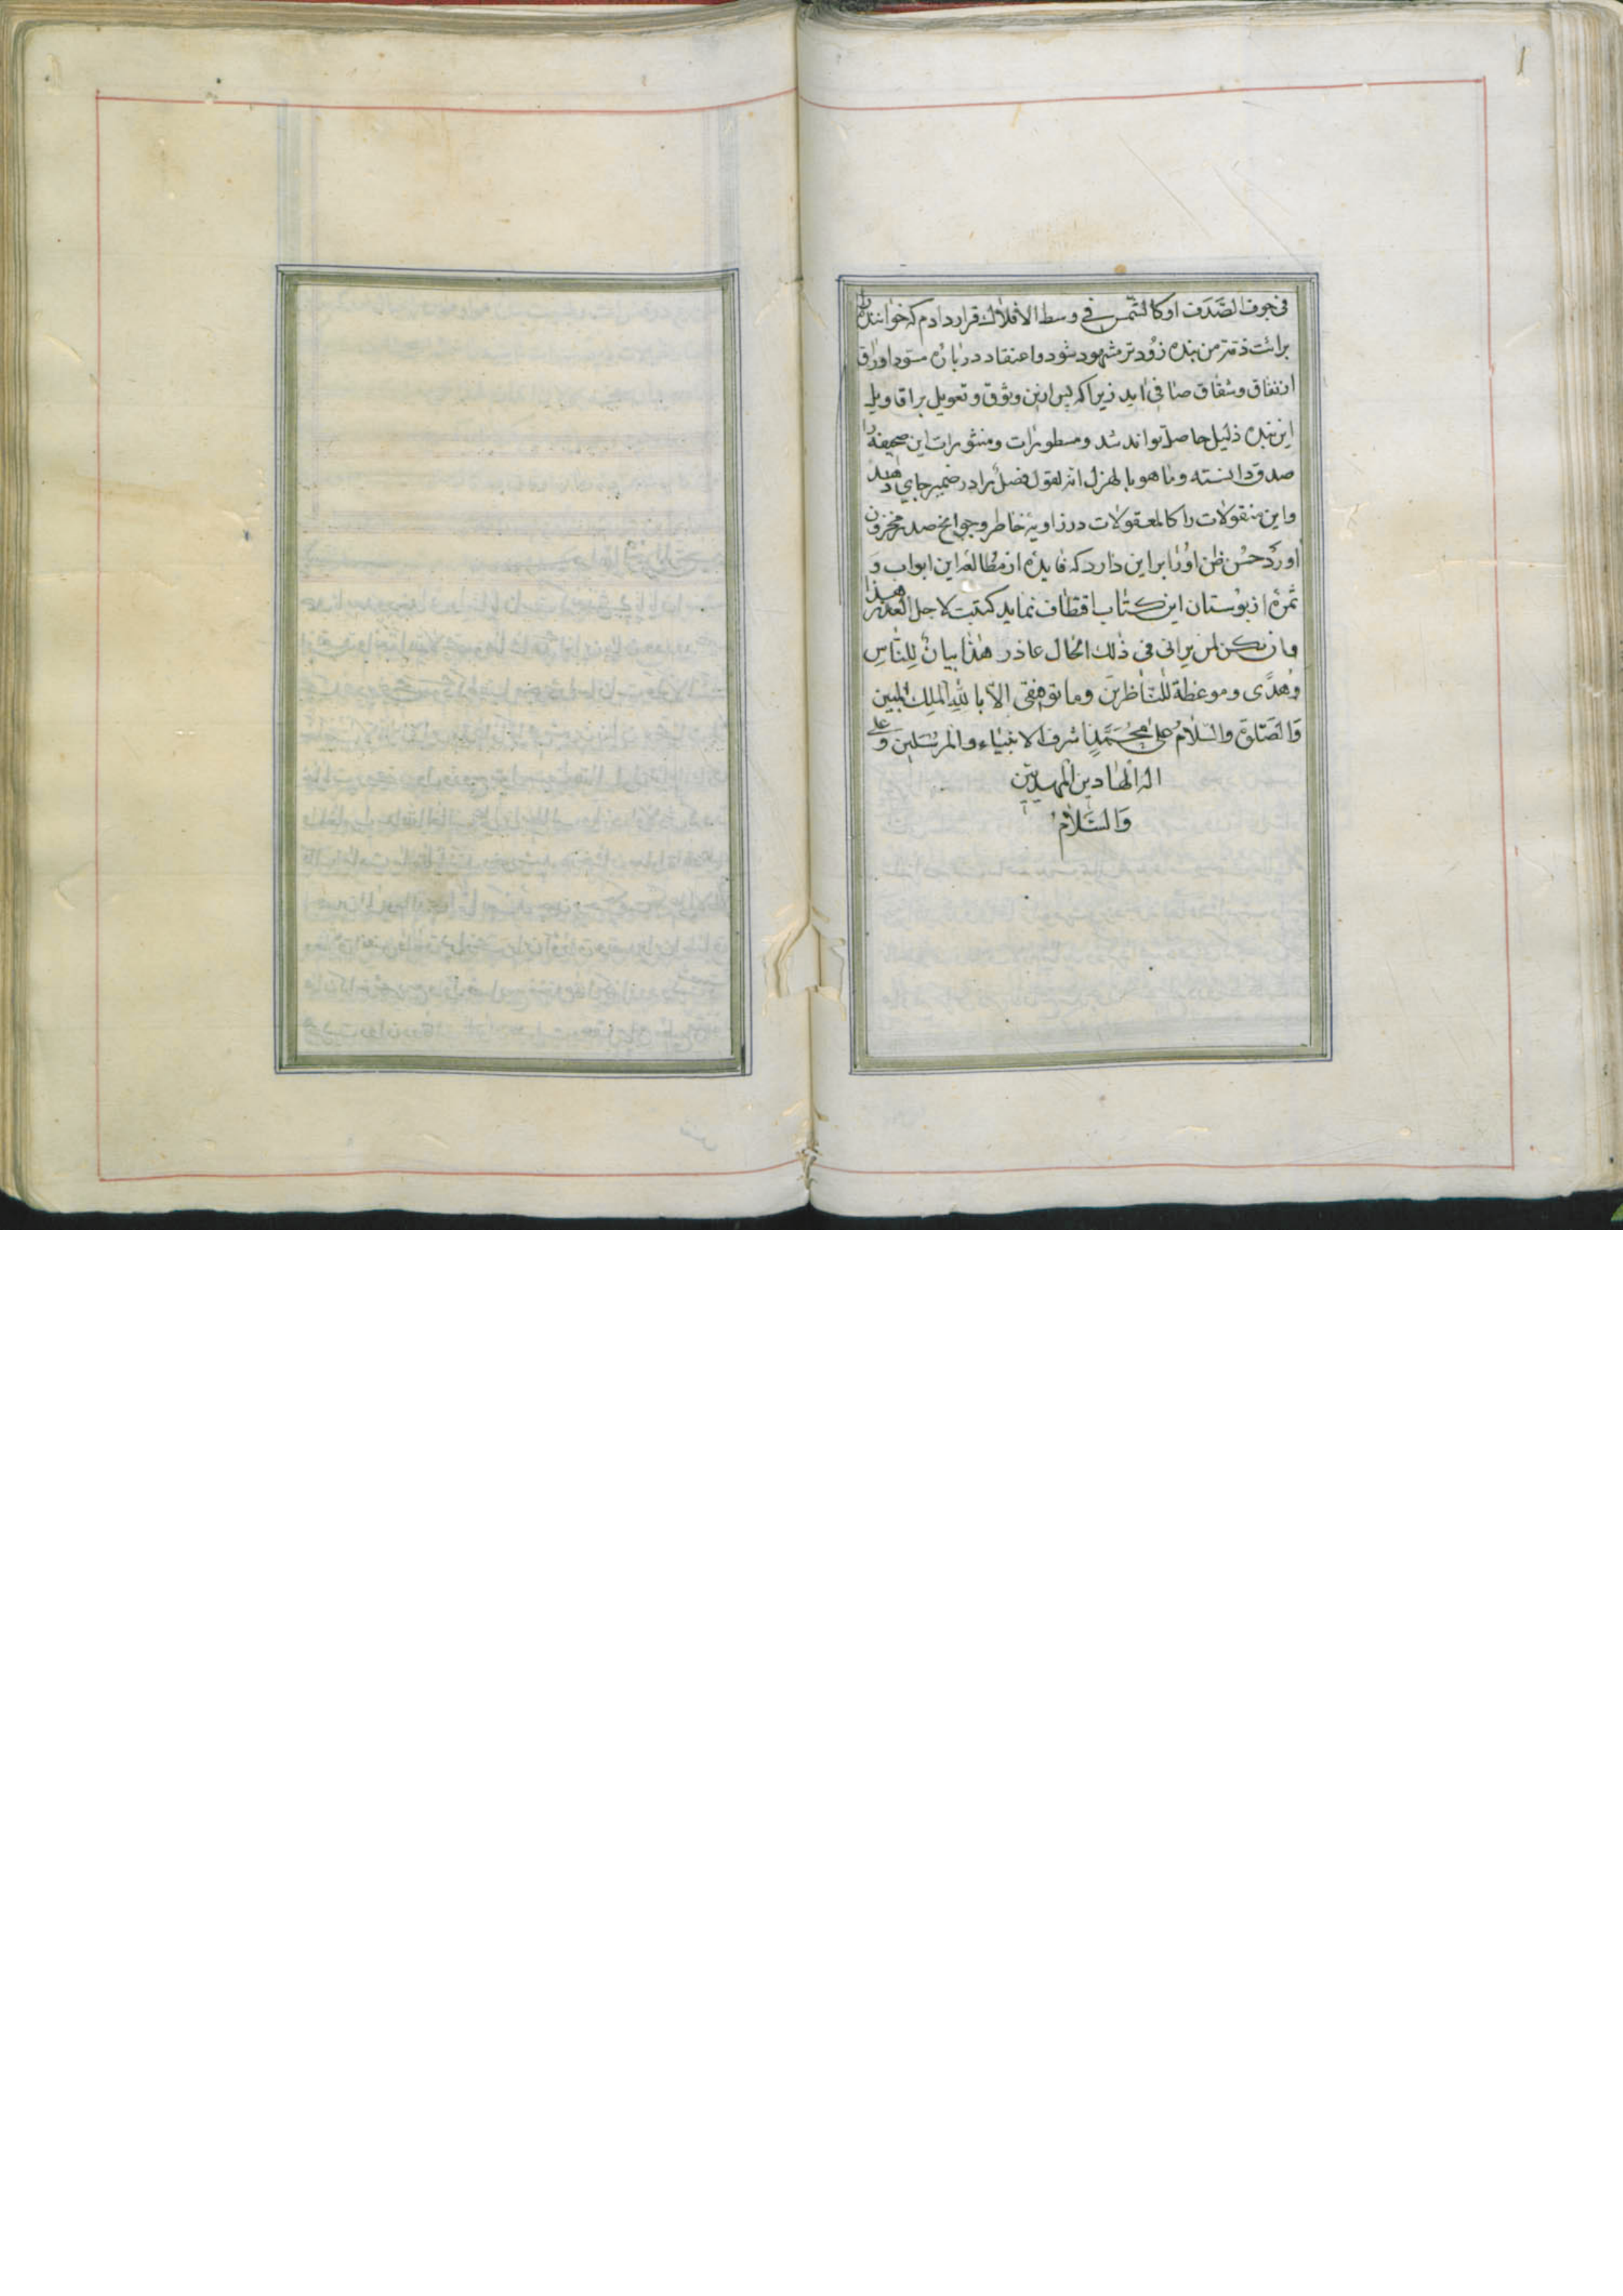 فی جوف الصَّدَف او کالشّمس فی وسط الافلاك قرار دادم که خواننده را
برائت ذمّت من بنده زودتر مشهود شود و اعتقاد در بارهٔ مسود اوراق
از نفاق و شقاق صافی اید زیرا که پس ازین وثوق و تعویل بر اقاویل
این بنده ذلیل حاصل تواند شد و مسطورات و منثورات این صحیفه را
صدق دانسته و ما هو بالهزل انه لقول فصل را در ضمیر جای دهد
و این منقولات را کالمعقولات در زاویهٔ خاطر و جوانح صدر مخزون
اورد حسْن ظن اورا بر این دارد که فایدهٔ از مطالعه این ابواب وَ
ثمرهٔ از بوستان این کتاب اقتطاف نماید کتبت لاجل العذر هذا
وان یکن لمن یرانی فی ذلك الحال عاذر هٰذا بیانٌ لِلنّاسِ
وَهُدًی و موعظة للنّاظرینَ و ما توفیقی الّا باللهِ الملِك المُبین
وَالصَّلوٰةُ والسّلامُ علیٰ محُمَّدٍ اشرف الانبیاء والمرسَلینَ وَ علی
اله الهادین المهدیین
وَالسَّلامُ